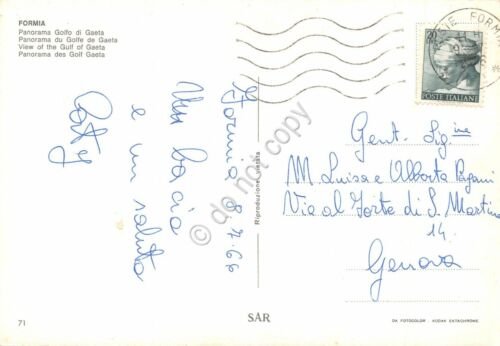 FORMIA
Panorama Golfo di Gaeta
Panorama du Golfe de Gaeta
View of the Gulf of Gaeta
Panorama des Golf Gaeta
Formia 8.7.66
Un bacio
e un saluto
FORMIA
20
POSTE ITALIANE
Gent. Sig.ine
M. Luisa e Alberta Pagani
Via al Forte di S. Martino
14.
Genova
Riproduzione vietata
do not copy
71
SAR
DA FOTOCOLOR - KODAK EKTACHROME